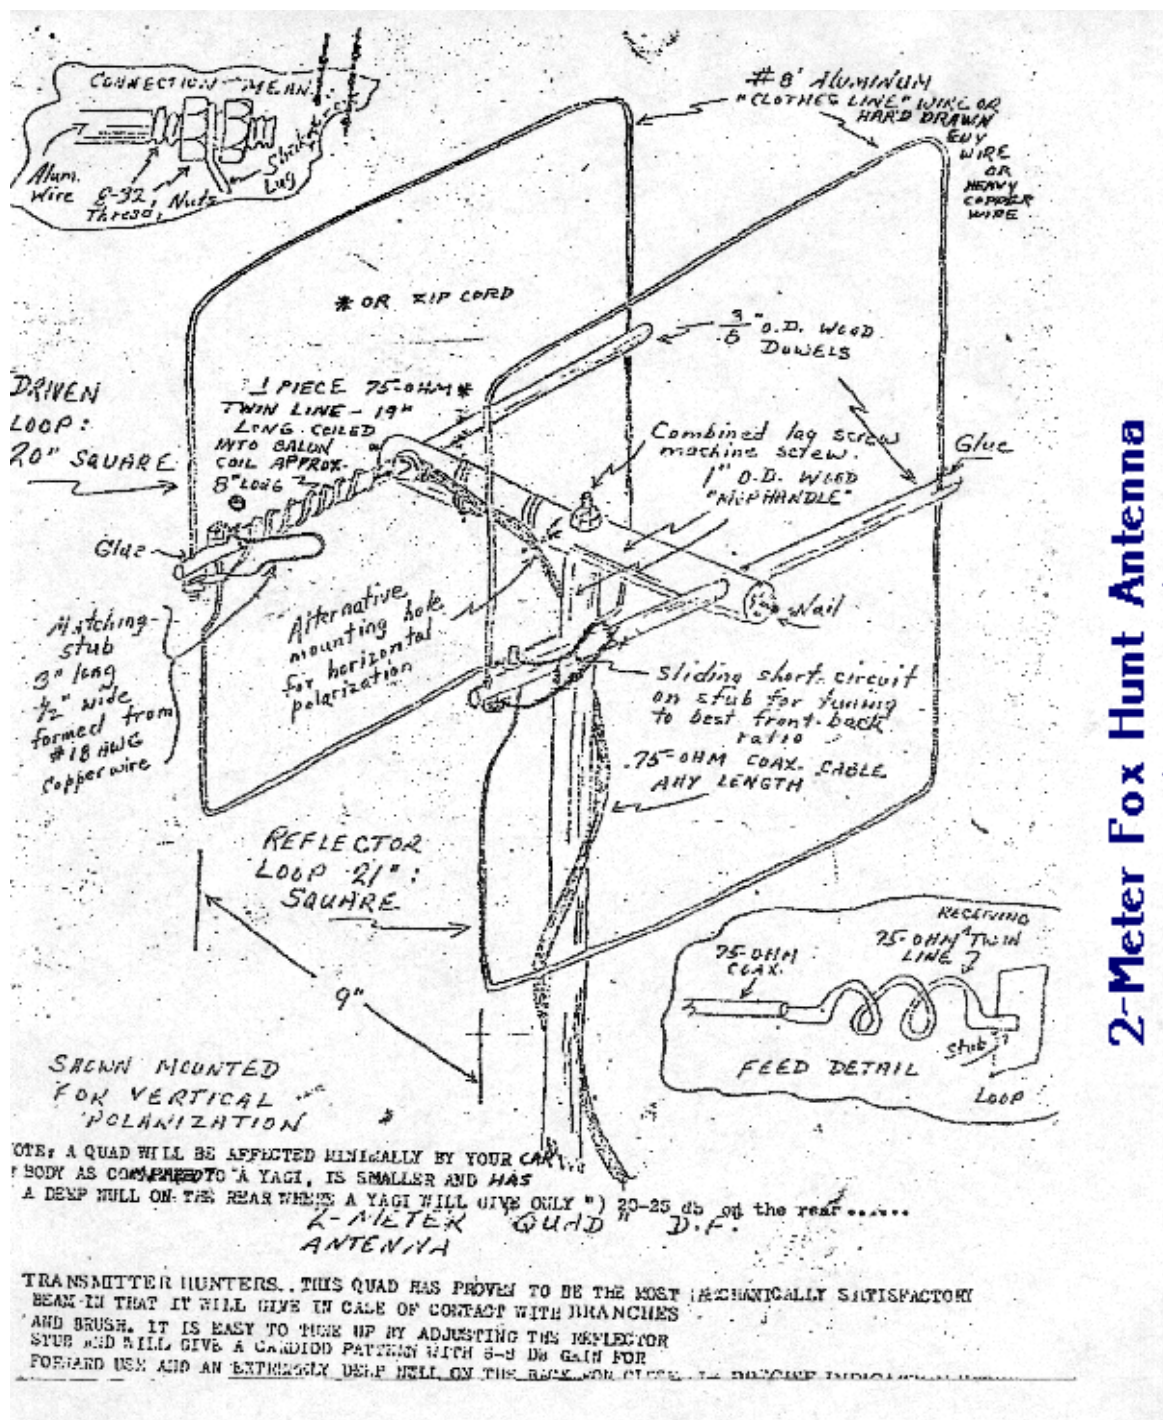 CONNECTION MEANS:
Alum.
Wire
8-32
Thread,
Nuts
Lug
#8' ALUMINUM
"CLOTHES LINE" WIRE OR
HARD DRAWN
GUY
WIRE
OR
HEAVY
COPPER
WIRE
* OR ZIP CORD
O.D. WOOD
DOWELS
DRIVEN
LOOP:
20" SQUARE
1 PIECE 75-OHM *
TWIN LINE - 19"
LONG COILED
INTO BALUN
COIL APPROX.
8" LONG
Combined lag screw
machine screw.
1" O.D. WOOD
"MOPHANDLE"
Glue
Glue
Nail
Alternative
mounting hole
for horizontal
polarization
Matching
stub
3" long
1/2" wide
formed from
#18 AWG
Copper wire
sliding short-circuit
on stub for tuning
to best front-back
ratio
75-OHM COAX. CABLE
ANY LENGTH
REFLECTOR
LOOP 21":
SQUARE
9"
RECEIVING
75-OHM TWIN
LINE
75-OHM
COAX.
Stub
FEED DETAIL
LOOP
SHOWN MOUNTED
FOR VERTICAL
POLANIZATION
OTE: A QUAD WILL BE AFFECTED MINIMALLY BY YOUR CAR
BODY AS COMPARED TO A YAGI, IS SMALLER AND HAS
A DEEP NULL ON THE REAR WHERE A YAGI WILL GIVE ONLY ") 20-25 db on the rear......
2-METER "QUAD" D.F.
ANTENNA
TRANSMITTER HUNTERS.. THIS QUAD HAS PROVEN TO BE THE MOST MECHANICALLY SATISFACTORY
BEAM IN THAT IT WILL GIVE IN CASE OF CONTACT WITH BRANCHES
AND BRUSH. IT IS EASY TO TUNE UP BY ADJUSTING THE REFLECTOR
STUB AND WILL GIVE A CARDIOD PATTERN WITH DB GAIN FOR
FORWARD USE AND AN EXTREMELY DEEP NULL ON THE
2-Meter Fox Hunt Antenna